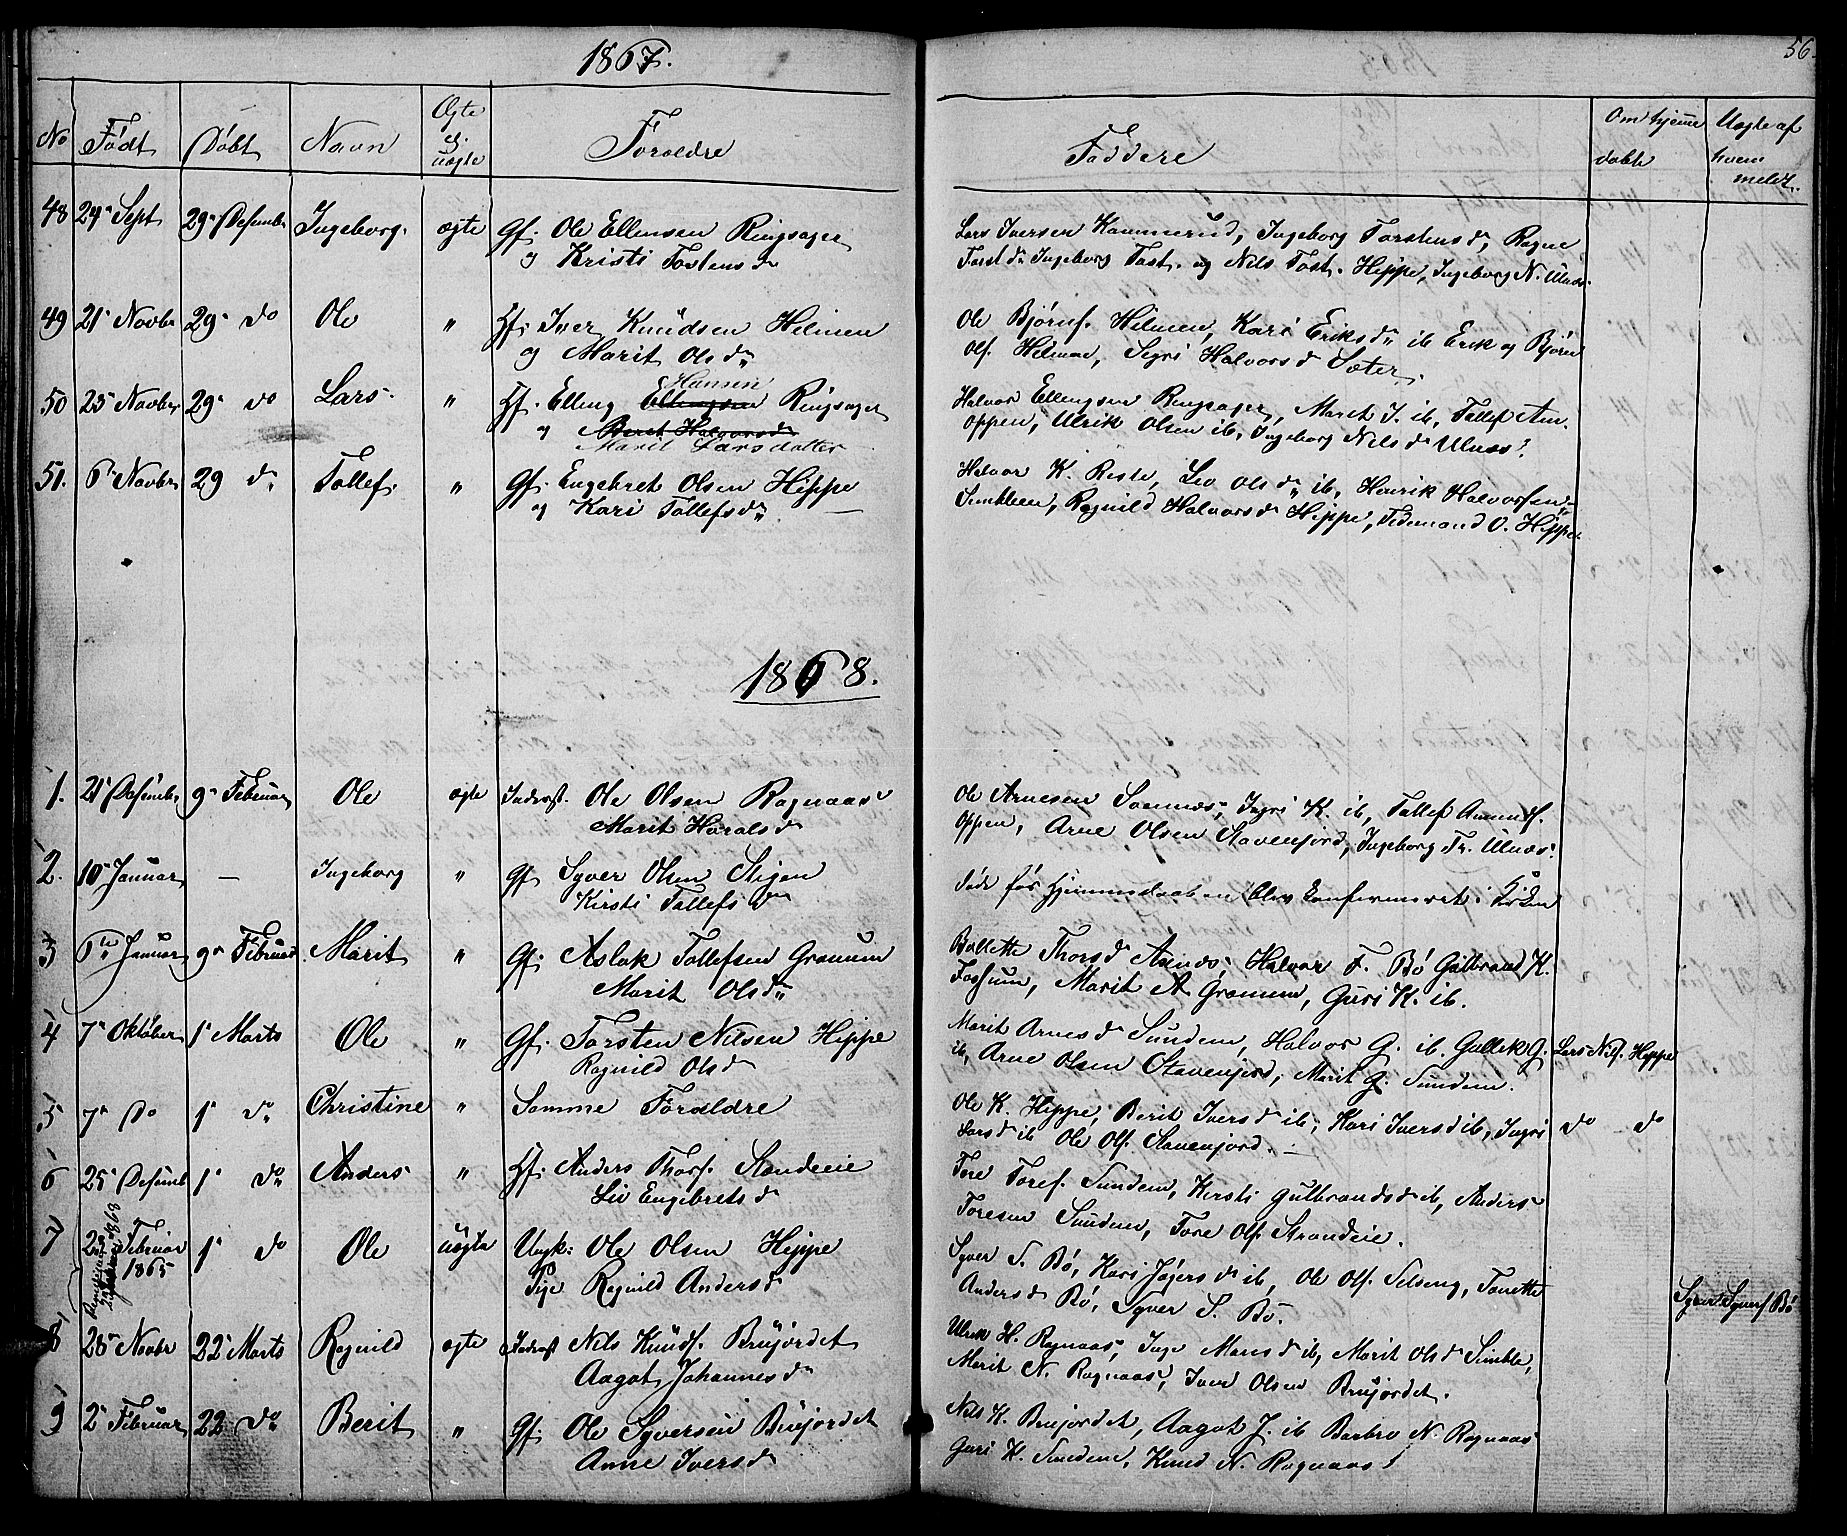 1867.
56.
No Født Døbt Navn Ægte el. uægte Foraldre Faddere Om hjemme døbte Uægte af hvem meldt.
48 24de Sept 29de Desembr Ingeborg. ægte Gf. Ole Ellensen Ringsager
og Kristi Tostensd
Lars Iversen Kammerud, Ingeborg Torstensd, Ragne
Torstd Ingeborg Tost. og Nils Tost. Hippe, Ingeborg N. Ulnæs.
49 21de Novbr 29de do Ole " Hf. Iver Knudsen Hilmen
og Marit Olsd
Ole Bjørns. Hilmen, Kari Eriksd ib Erik og Bjørn
Ols. Hilmen, Segri Halvorsd Sæter.
50 23de Novbr 29de do Lars. " Hf. Elling Ellingsen Hansen Ringsager
og Berit Halvorsd
Marit Larsdatter
Halvor Ellingsen Ringsager, Marit I. ib, Tollef Am.
Oppen, Ulrik Olsen ib, Ingeborg Nilsd Ulnæs.
51. 6te Novbr 29 do Tollef. " Gf. Engebret Olsen Hippe
og Kari Tollefsd
Halvor K. Reste, Liv Olsd ib, Henrik Halvorsen
Sembleen, Ragnild Halvorsd Hippe, Tidemand O. Hippe.
1868.
1. 21de Desembr 9de Februar Ole ægte Inderst. Ole Olsen Ragnaas
Marit Haralsd
Ole Arnesen Sannæs, Ingri K. ib, Tollef Amunds.
Oppen, Arne Olsen Stavenjord, Ingeborg Tr. Ulnæs.
2. 10de Januar — Ingeborg " Gf. Syver Olsen Stigen
Kirsti Tollefsd
Døde før Hjemmedaaben blev konfirmeret i Kirken
3 6te Januar 9de Februar Marit " Gf. Aslak Tollefsen Granum
Marit Olsd
Bollette Thorsd Aanæs, Halvor T. Bø Gulbrand K.
Fossum, Marit A. Granum, Guri K. ib.
4 7de Oktober 1de Marts Ole " Gf. Torsten Nilsen Hippe
Ragnild Olsd
Marit Arnesd Sundem, Halvor G. ib. Gullik G. Lars Nils. Hippe
ib, Arne Olsen Stavenjord, Marit G. Sundem.
5 7de Do 1de do Christine " Samme Foraldre
Ole K. Hippe, Berit Iversd ib, Kari Iversd ib, Ingri do do
Larsd ib Ole Ols. Stavenjord.
6 25de Desemb 1de do Anders " Hf. Anders Thors. Strandeie
Liv Engebretsd
Tore Tores. Sundem, Kirsti Gulbrandsd ib, Anders
Toresen Sundem, Tore Ols. Strandeie.
7 Februar 1865 1de do Ole uægte Ungk: Ole Olsen Hippe
Pige Ragnild Andersd
Syver S. Bø, Kari Jøgersd ib, Ole Ols. Selseng, Tonette
Andersd Bø, Syver S. Bø.
Syvert Syvers Bø
8 28de Novbr 22de Marts Ragnild ægte Inderst Nils Knuds. Brujordet
Aagot Johannesd
Ulrik H. Ragnaas, Inge Mansd ib, Marit Olsd Simble,
Marit N. Ragnaas, Iver Olsen Brujordet.
9 2de Februar 22 do Berit " Gf. Ole Syversen Brujordet
Anne Iversd
Nils K. Brujordet, Aagot J. ib Barbro N. Ragnaas
Guri K. Sundem, Knud N. Ragnaas.